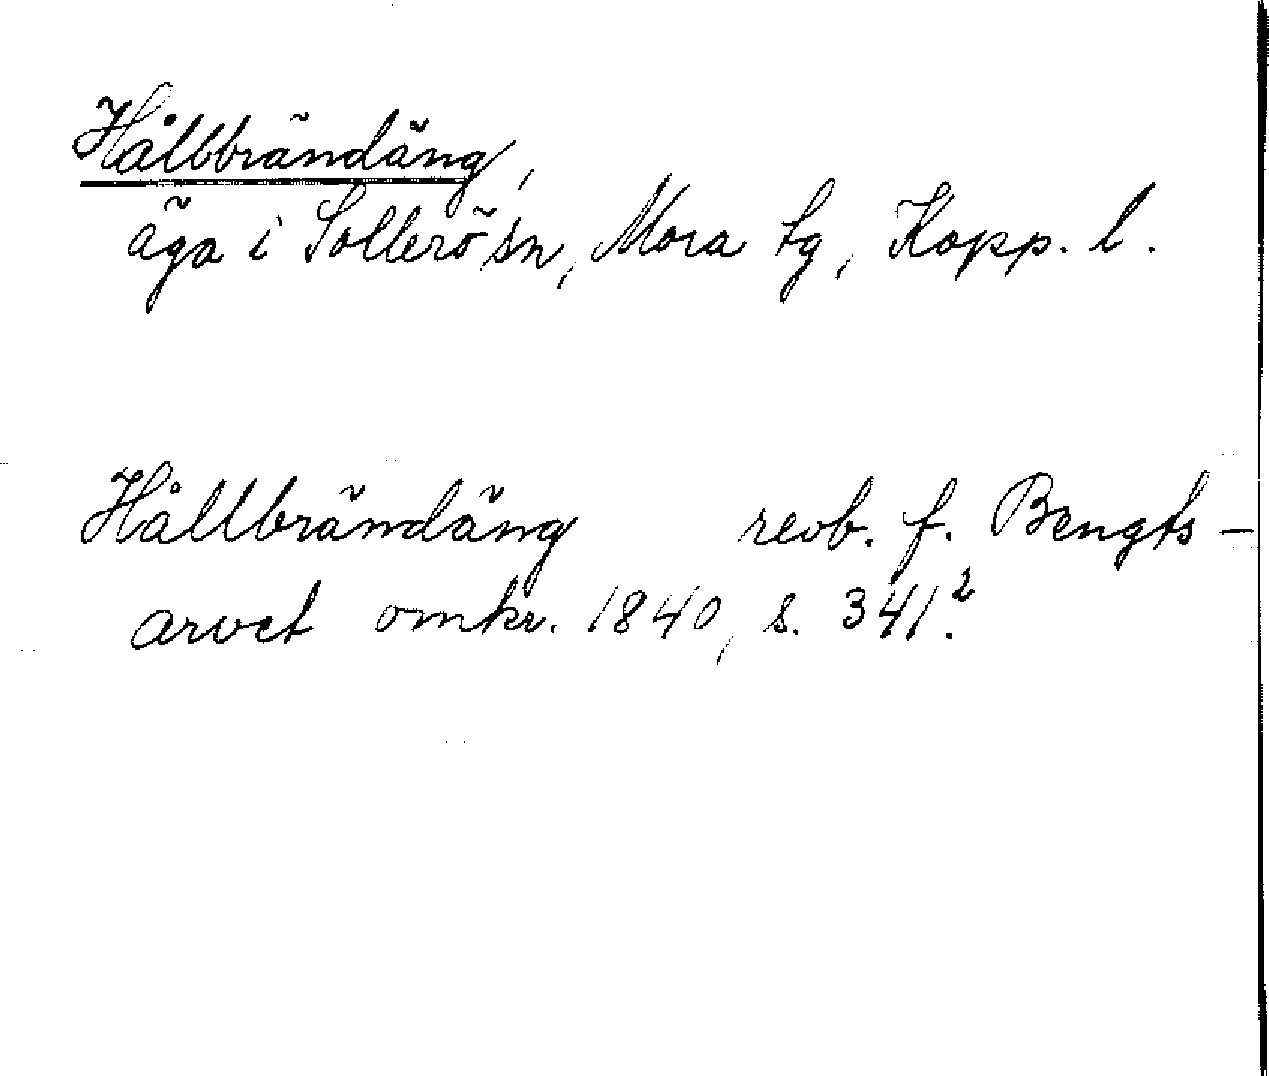 Hålbbrändäng,
äga i Sollerö sn, Mora tg, Kopp. l.
Hållbrändäng revb. f. Bengts-
arvet omkr. 1840, s. 341².